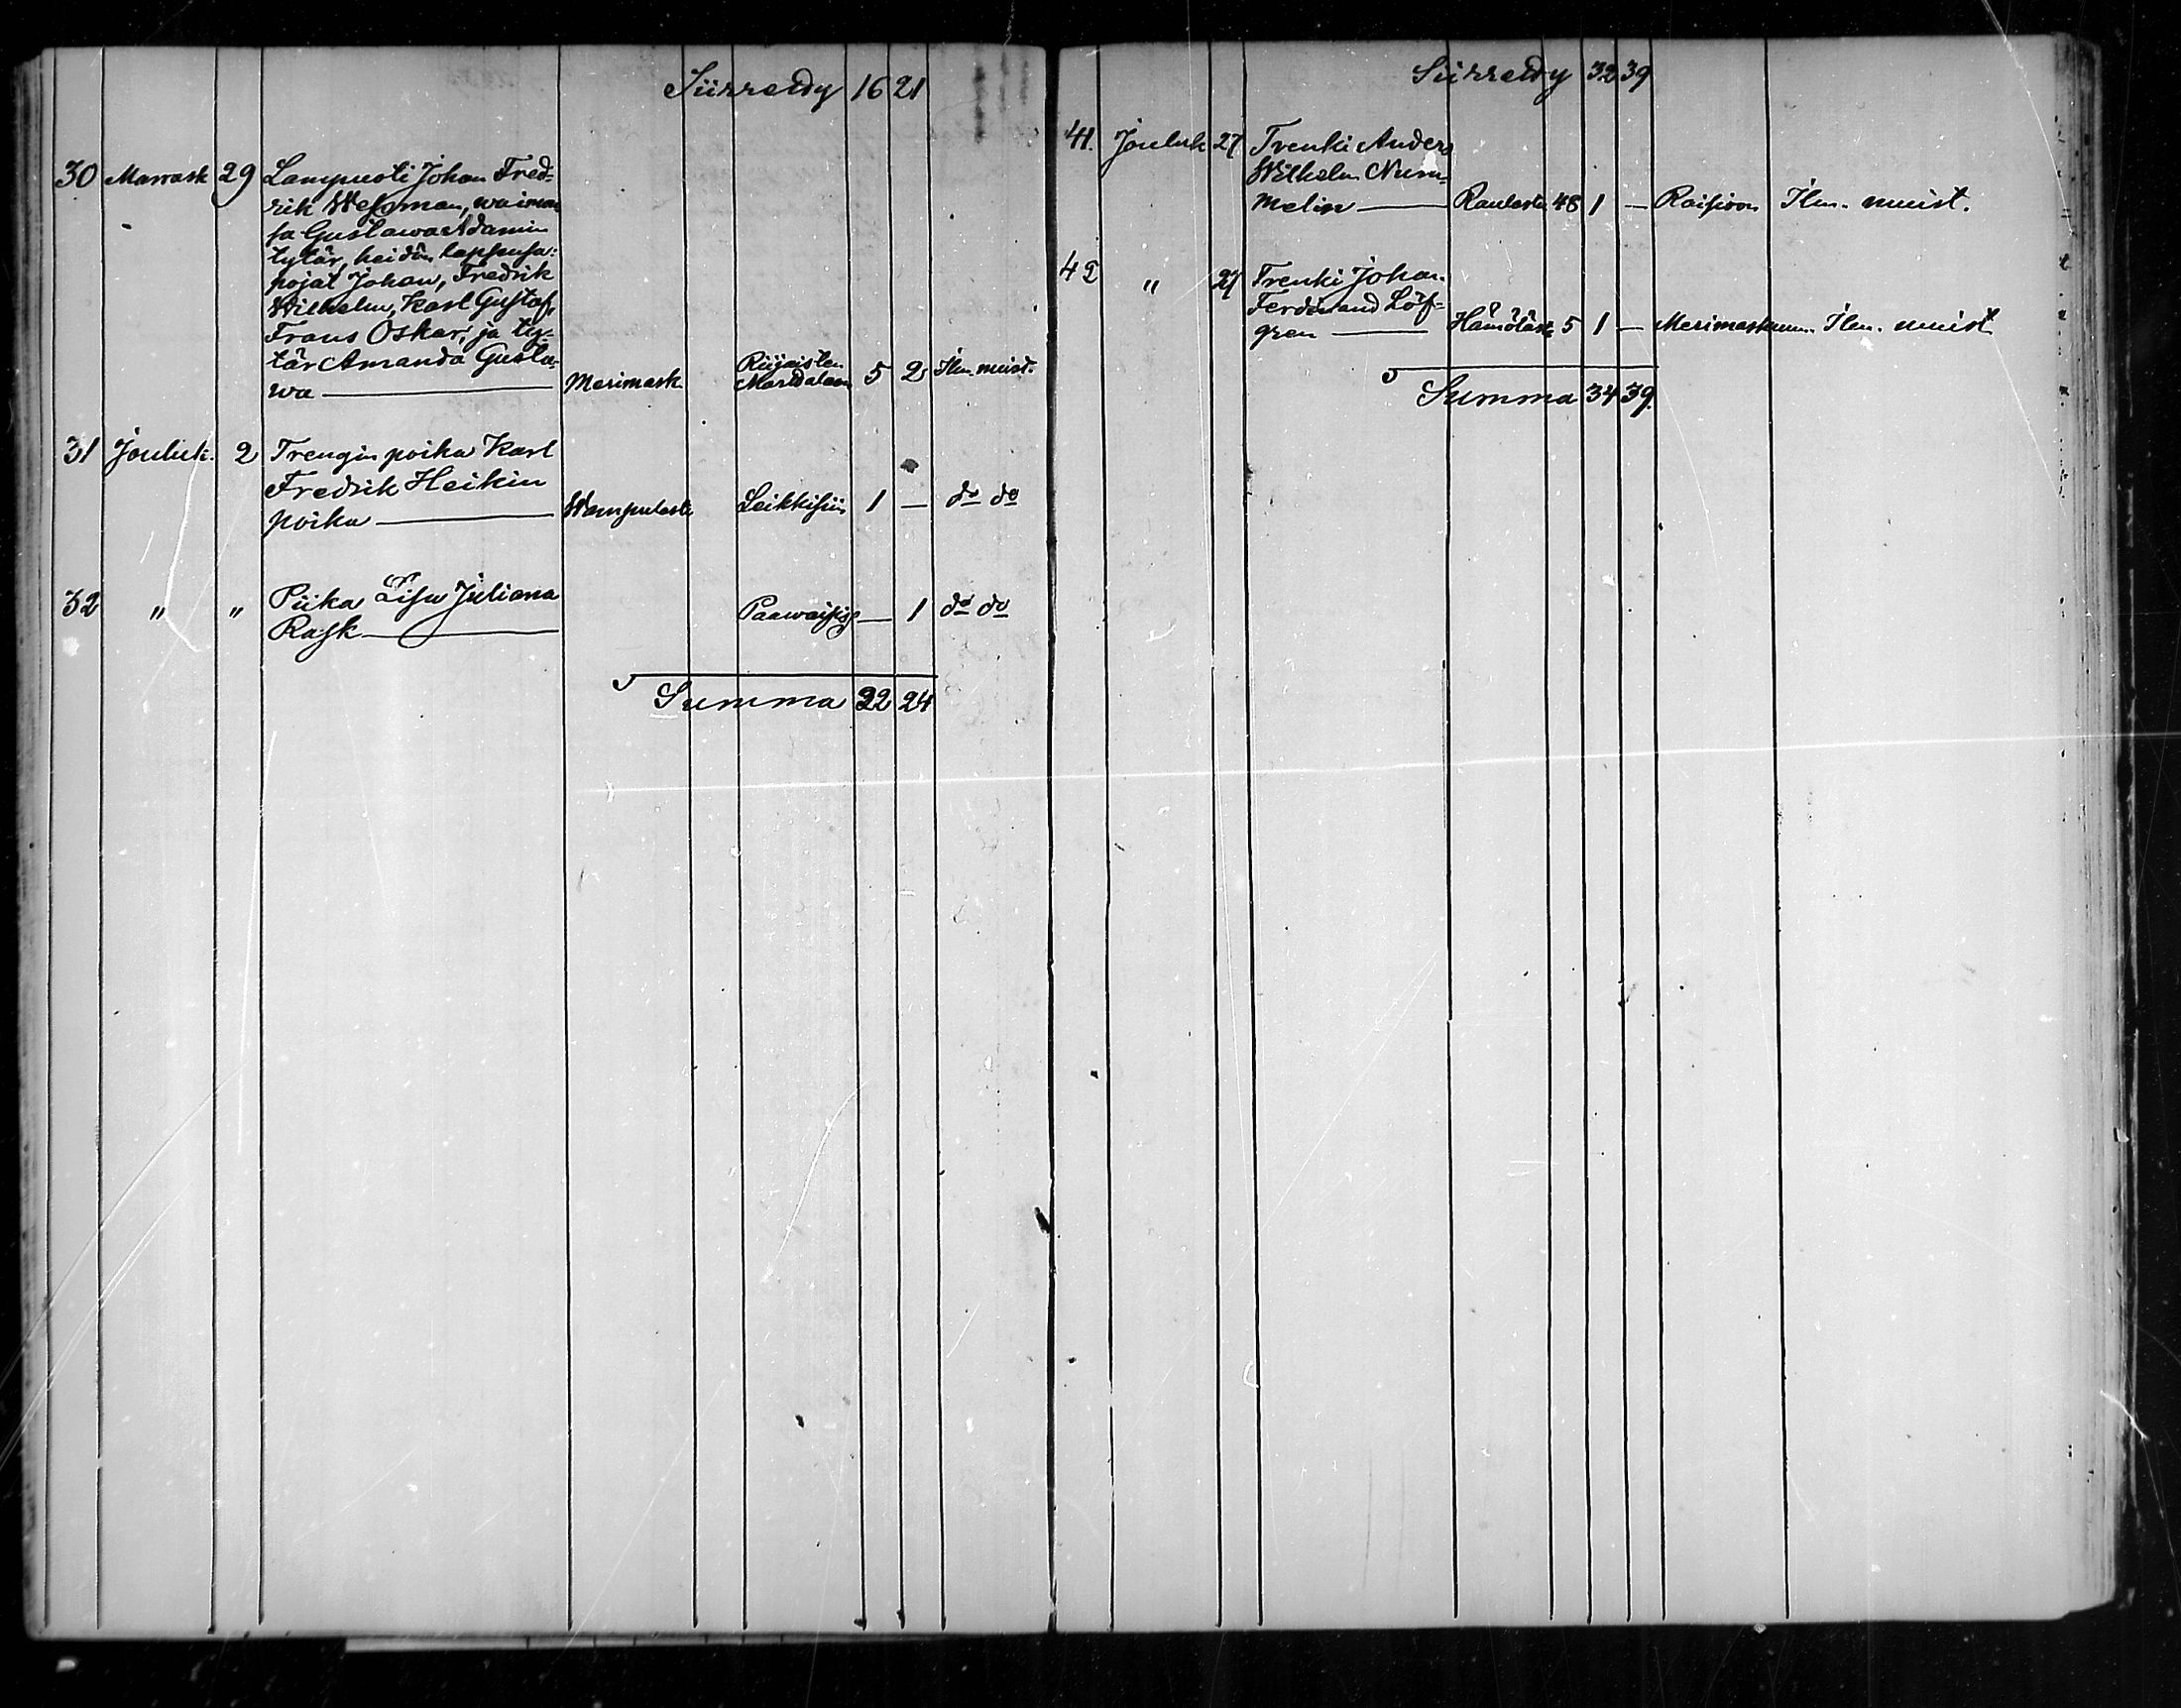 Siirretty 16 21
30 Marrask 29 Lampuoti Johan Fred-
rik Wessman, waimon-
sa Gustawa Adamin
tytär, heidän lapsensa:
pojat Johan, Fredrik
Wilhelm, Karl Gustaf,
Frans Oskar, ja ty-
tär Amanda Gusta-
wa — Merimask 5 2 Ilm. muist.
31 Jouluk. 2 Trengin poika Karl
Fredrik Heikin
poika — Wampulasta Leikkisiin 1 — do do
32 " " Piika Lisa Juliana
Rask — Paawaisis 1 do do
Summa 22 24
Siirretty 32 39
41. Jouluk 27 Trenki Anders
Wilhelm Num-
melin — Raulasta 48 1 — Raision Ilm. muist.
42 " 27 Trenki Johan
Ferdinand Löf-
gren — 5 1 — Merimaskuun Ilm. muist
Summa 34 39.